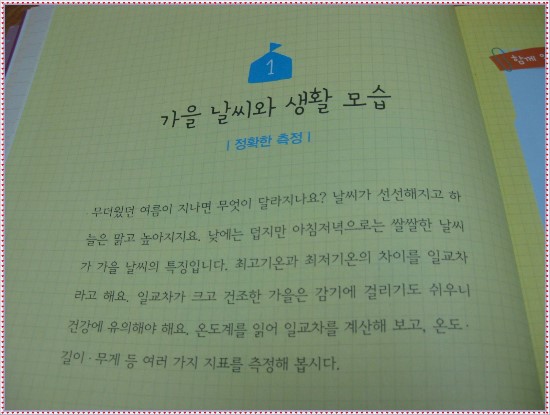 1
가을 날씨와 생활 모습
| 정확한 측정 |
무더웠던 여름이 지나면 무엇이 달라지나요? 날씨가 선선해지고 하
늘은 맑고 높아지지요. 낮에는 덥지만 아침저녁으로는 쌀쌀한 날씨
가 가을 날씨의 특징입니다. 최고기온과 최저기온의 차이를 일교차
라고 해요. 일교차가 크고 건조한 가을은 감기에 걸리기도 쉬우니
건강에 유의해야 해요. 온도계를 읽어 일교차를 계산해 보고, 온도·
길이·무게 등 여러 가지 지표를 측정해 봅시다.
함께